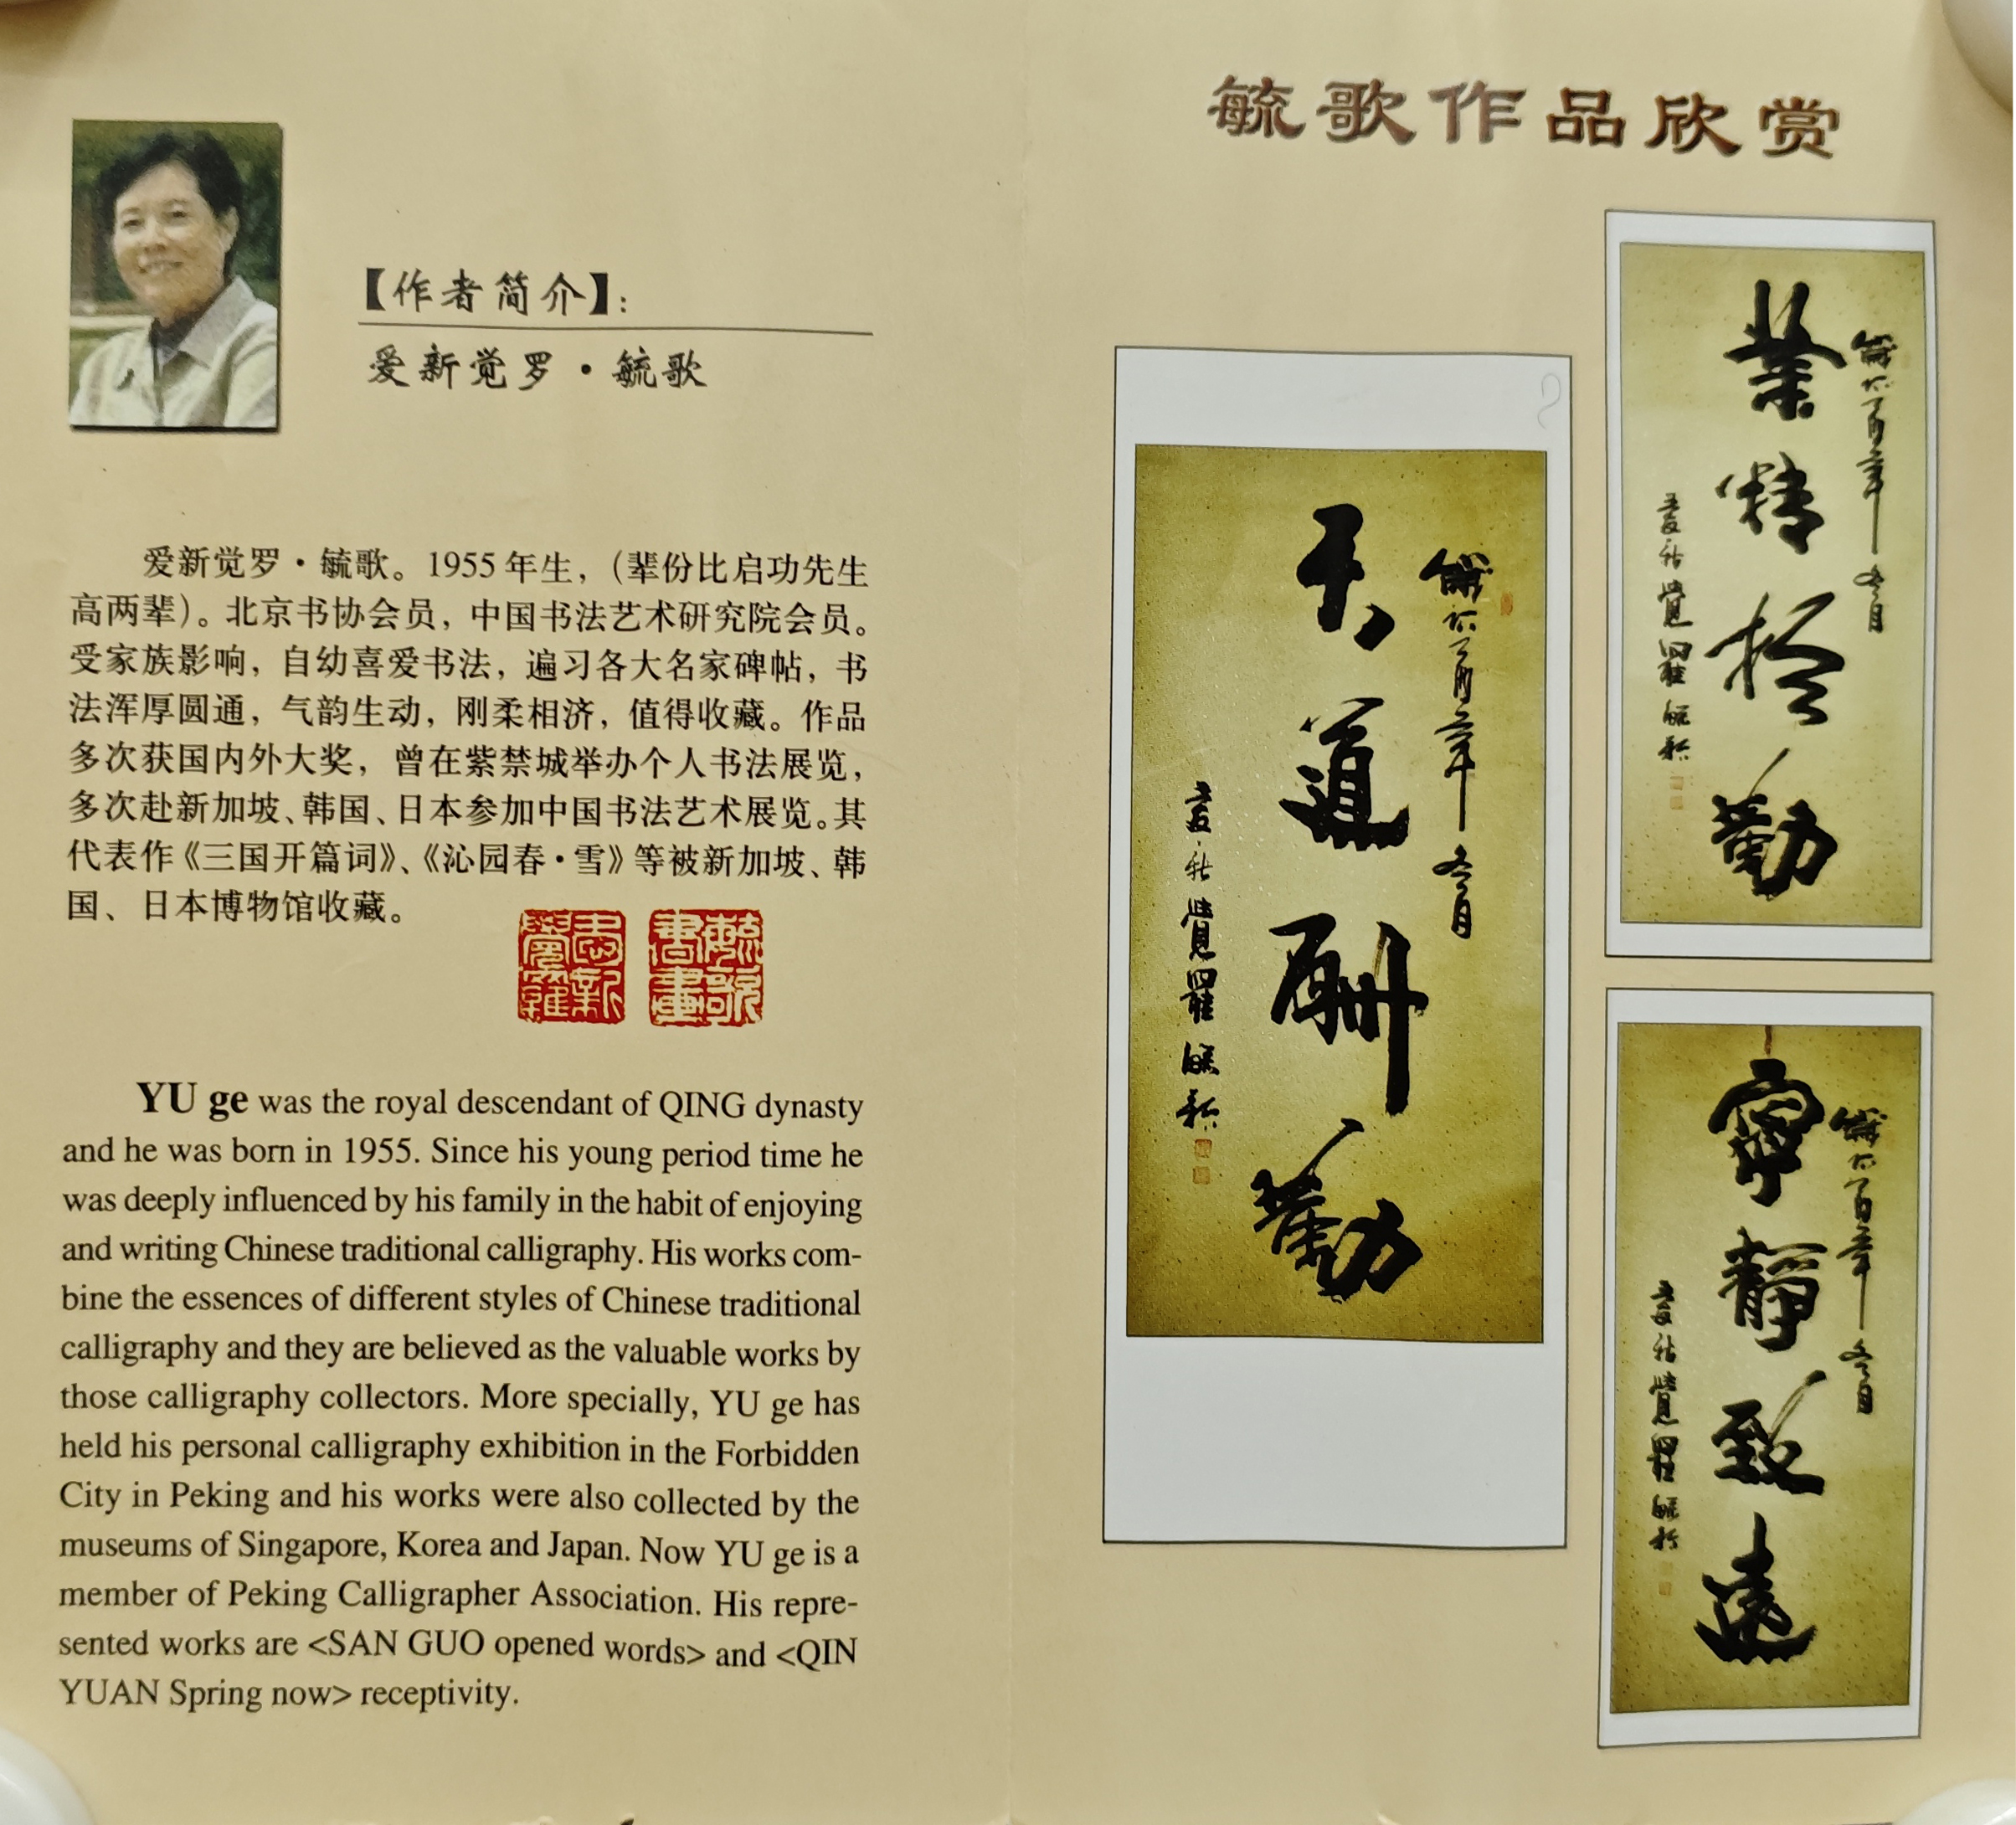 【作者简介】:
爱新觉罗·毓歌
爱新觉罗·毓歌。1955年生，(辈份比启功先生
高两辈)。北京书协会员，中国书法艺术研究院会员。
受家族影响，自幼喜爱书法，遍习各大名家碑帖，书
法浑厚圆通，气韵生动，刚柔相济，值得收藏。作品
多次获国内外大奖，曾在紫禁城举办个人书法展览，
多次赴新加坡、韩国、日本参加中国书法艺术展览。其
代表作《三国开篇词》、《沁园春·雪》等被新加坡、韩
国、日本博物馆收藏。
毓歌書畫
YU ge was the royal descendant of QING dynasty
and he was born in 1955. Since his young period time he
was deeply influenced by his family in the habit of enjoying
and writing Chinese traditional calligraphy. His works com-
bine the essences of different styles of Chinese traditional
calligraphy and they are believed as the valuable works by
those calligraphy collectors. More specially, YU ge has
held his personal calligraphy exhibition in the Forbidden
City in Peking and his works were also collected by the
museums of Singapore, Korea and Japan. Now YU ge is a
member of Peking Calligrapher Association. His repre-
sented works are <SAN GUO opened words> and <QIN
YUAN Spring now> receptivity.
毓歌作品欣赏
天道酬勤
愛新覺羅毓歌
業精於勤
愛新覺羅毓歌
寧靜致遠
愛新覺羅毓歌